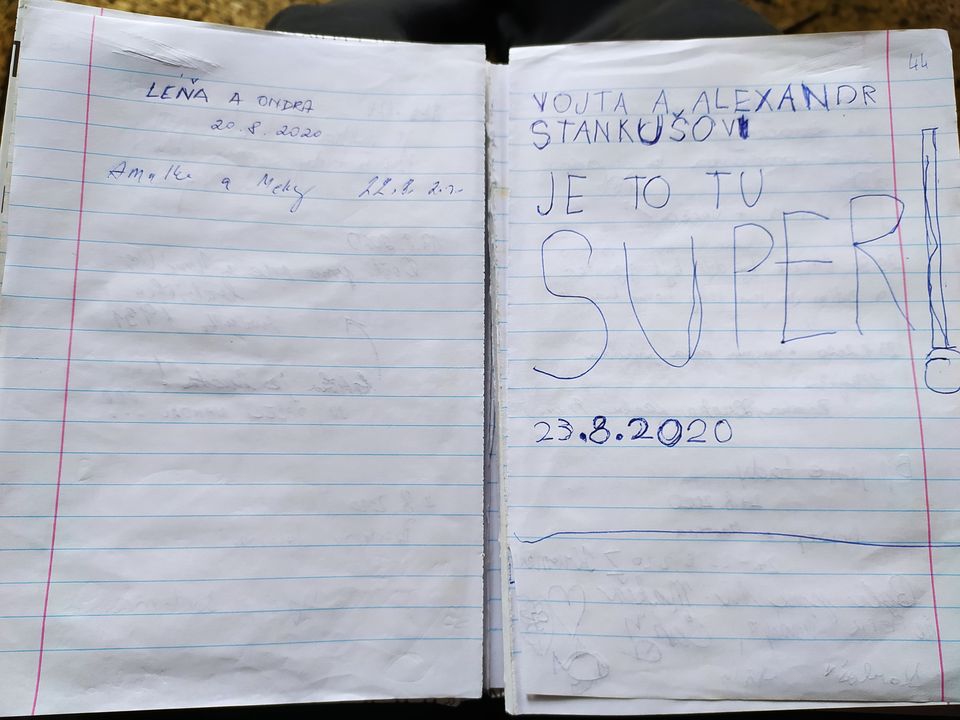 LEŇA A ONDRA
20.8.2020
Amálka a 22.8.
44
VOJTA A ALEXANDR
STANKUŠOVI
JE TO TU
SUPER!
23.8.2020